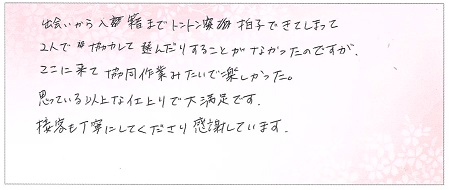 出会いから入籍までトントン拍子できてしまって
2人で協力して選んだりすることがなかったのですが、
ここに来て協同作業みたいで楽しかった。
思っている以上な仕上りで大満足です。
接客も丁寧にしてくださり感謝しています。